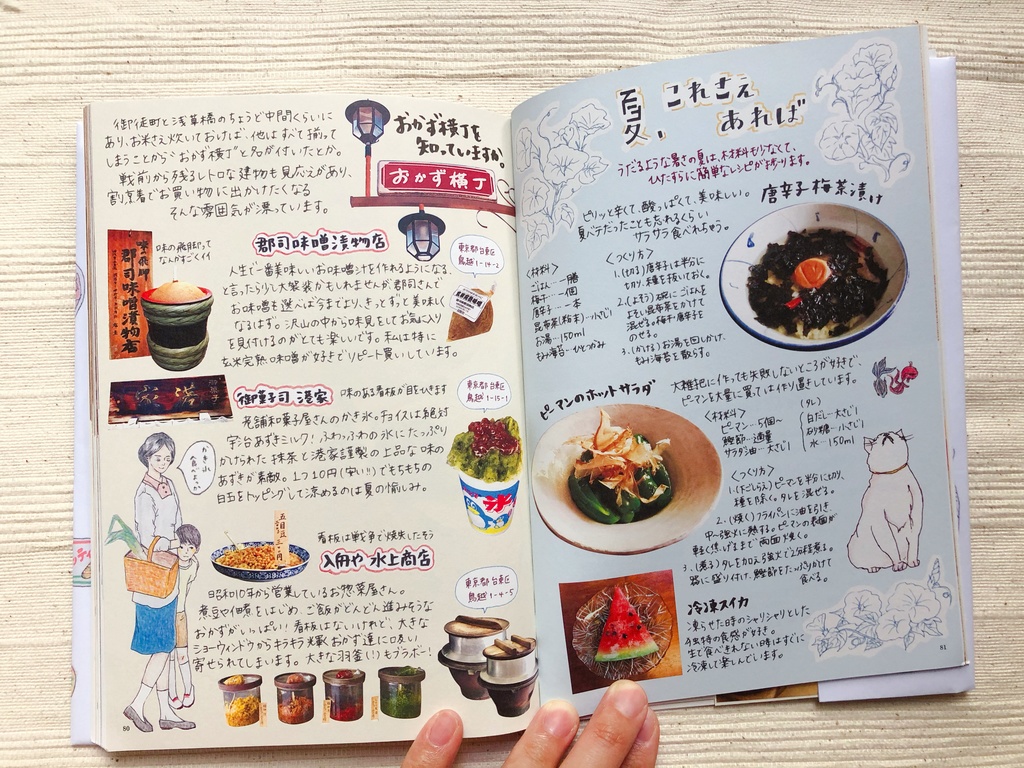 おかず横丁を
知っていますか。
おかず横丁
御徒町と浅草橋のちょうど中間くらいに
あり、お米さえ炊いておけば、他はすべて揃って
しまうことから"おかず横丁"と名が付いたとか。
戦前から残るレトロな建物も見応えがあり、
割烹着でお買い物に出かけたくなる
そんな雰囲気が漂っています。
郡司味噌漬物店
味の飛脚って
なんかすごくイイ
郡司味噌漬物店
東京都台東区
鳥越1-14-2
人生で一番美味しいお味噌汁を作れるようになる、
と言ったら少し大袈裟かもしれませんが郡司さんで
お味噌を選べば今までより、きっとずっと美味しく
なるはず。沢山の中から味見をしてお気に入り
を見付けるのがとても楽しいです。私は特に
玄米完熟味噌が好きでリピート買いしています。
御菓子司 港家
味のある看板が目をひきます
東京都台東区
鳥越1-15-1
老舗和菓子屋さんのかき氷。チョイスは絶対
宇治あずきミルク!ふわっふわの氷にたっぷり
かけられた抹茶と港家謹製の上品な味の
あずきが素敵。1つ10円(安い!!)でもちもちの
白玉をトッピングして涼めるのは夏の愉しみ。
氷
かき氷
食べよっか
看板は戦争で焼失したそう
入舟や 水上商店
東京都台東区
鳥越1-4-5
昭和10年から営業しているお惣菜屋さん。
煮豆や佃煮をはじめ、ご飯がどんどん進みそうな
おかずがいっぱい!看板はないけれど、大きな
ショーウィンドウからキラキラ輝くおかず達に吸い
寄せられてしまいます。大きな羽釜(!)もブラボー!
80
夏、これさえ
あれば
うだるような暑さの夏は、材料も少なくて、
ひたすらに簡単なレシピが捗ります。
唐辛子梅茶漬け
ピリッと辛くて、酸っぱくて、美味しい。
夏バテだったことも忘れるくらい
サラサラ食べれちゃう。
<材料>
ごはん…一膳
梅干…一個
唐辛子…一本
昆布茶(粉末)…小さじ
お湯…150ml
もみ海苔…ひとつかみ
<つくり方>
1.(切る)唐辛子は半分に
切り、種を抜いておく。
2.(よそう)椀にごはんを
よそい昆布茶をかけて
混ぜる。梅干・唐辛子を
のせる。
3.(かける)お湯を回しかけ、
もみ海苔を散らす。
ピーマンのホットサラダ
大雑把に作っても失敗しないところが好きで、
ピーマンを大量に買っては作り置きしています。
<材料>
ピーマン…5個〜
鰹節…適量
サラダ油…大さじ1
(タレ)
白だし…大さじ1
砂糖…小さじ1
水…150ml
<つくり方>
1.(下ごしらえ)ピーマンを半分に切り、
種を除く。タレを混ぜる。
2.(焼く)フライパンに油を引き、
中〜強火に熱する。ピーマンの表面が
軽く焦げるまで両面焼く。
3.(煮る)タレを加え強火で2分程煮る。
器に盛り付け、鰹節をたっぷりかけて
食べる。
冷凍スイカ
凍らせた時のシャリシャリとした
独特の食感が好き。
生で食べきれない時はすぐに
冷凍して楽しんでいます。
81